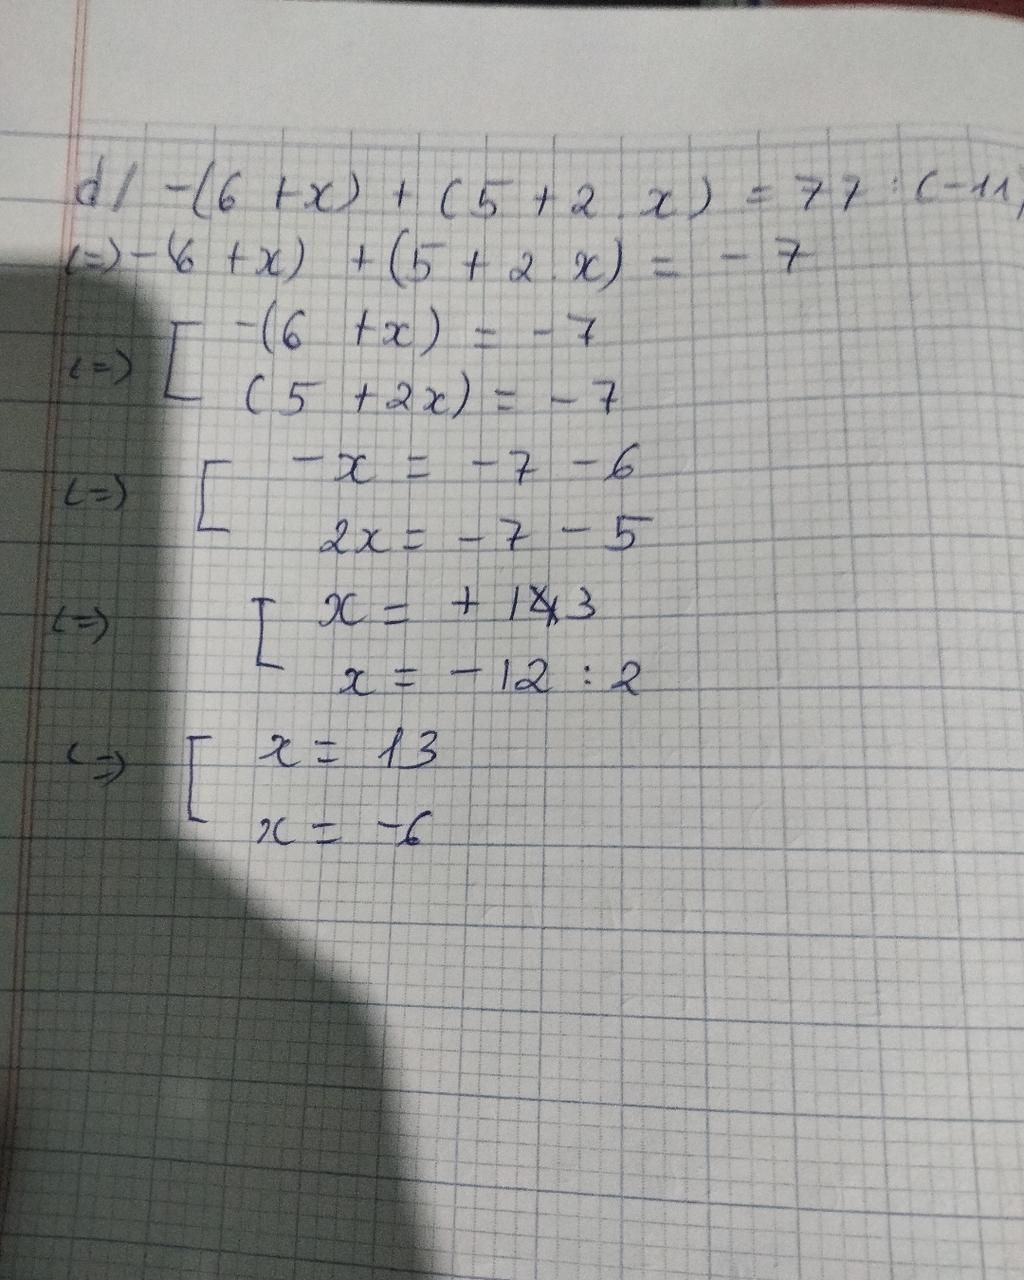 d/ -(6 + x) + (5 + 2 . x) = 77 : (-11)
(=) -(6 + x) + (5 + 2 . x) = - 7
(=) [ -(6 + x) = - 7
(5 + 2x) = - 7
(=) [ - x = - 7 - 6
2x = - 7 - 5
(=) [ x = + 13
x = - 12 : 2
(=>) [ x = 13
x = -6